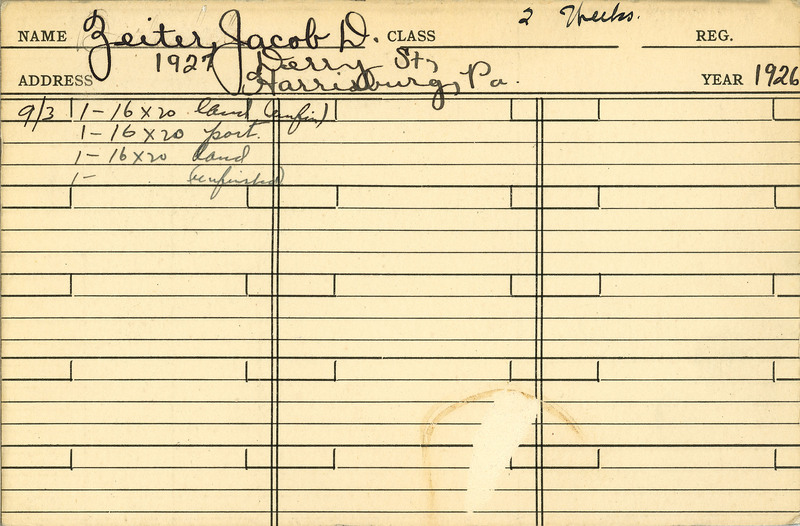 NAME Zeiter, Jacob D. CLASS 2 Weeks. REG.
1927 Derry St,
ADDRESS Harrisburg, Pa. YEAR 1926
9/3 1-16x20 land (unfin)
1-16x20 port.
1-16x20 land
1- (unfinished